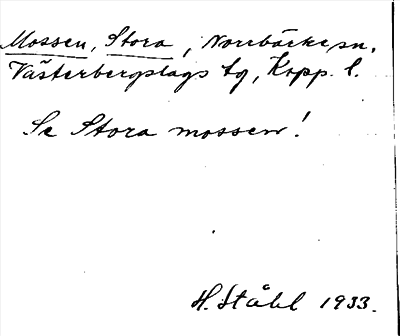 Mossen, Stora, Norrbärke sn.
Västerbergslags tg, Kopp. l.
Se Stora mossen!
H. Ståhl 1933.